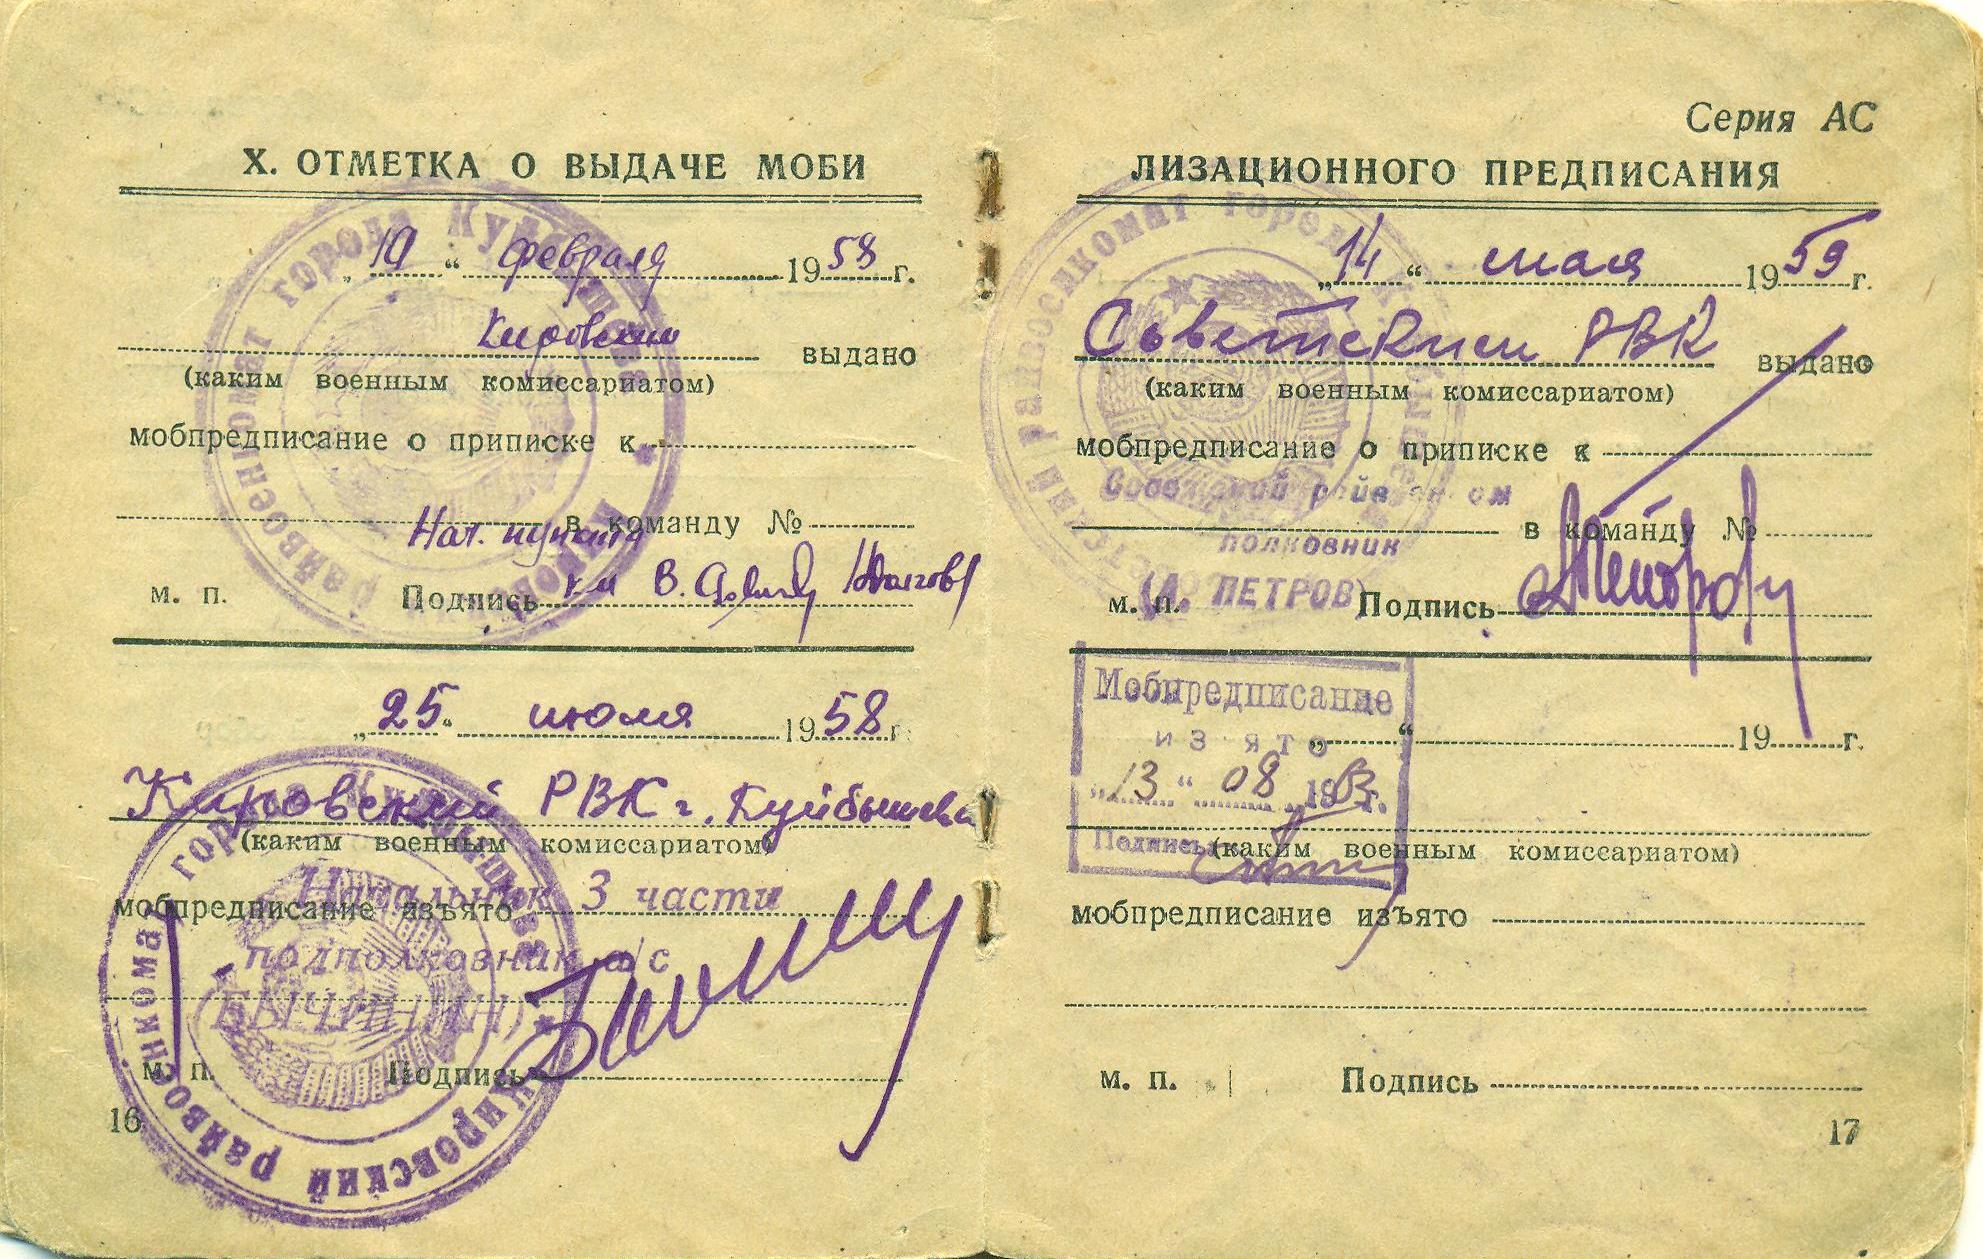 X. ОТМЕТКА О ВЫДАЧЕ МОБИ
„ 19 “ февраля 1958 г.
Кировским выдано
(каким военным комиссариатом)
мобпредписание о приписке к
в команду №
Нач. пункта
м. п. Подпись
„ 25 “ июля 1958 г.
Кировский РВК г. Куйбышева
(каким военным комиссариатом)
Начальник 3 части
мобпредписание изъято
подполковник а/с
(БЫЧИНИН)
м. п. Подпись
16
райвоенкомат города Куйбышева
Кировский райвоенкомат города Куйбышева
Серия АС
ЛИЗАЦИОННОГО ПРЕДПИСАНИЯ
„ 14 “ мая 1959 г.
Советским РВК выдано
(каким военным комиссариатом)
мобпредписание о приписке к
Советский райвоенком
в команду №
полковник
(А. ПЕТРОВ)
м. п. Подпись
Мобпредписание
изято
„ 13 “ 08 1963 г.
Подпись
„ “ 19 г.
(каким военным комиссариатом)
мобпредписание изъято
м. п. Подпись
17